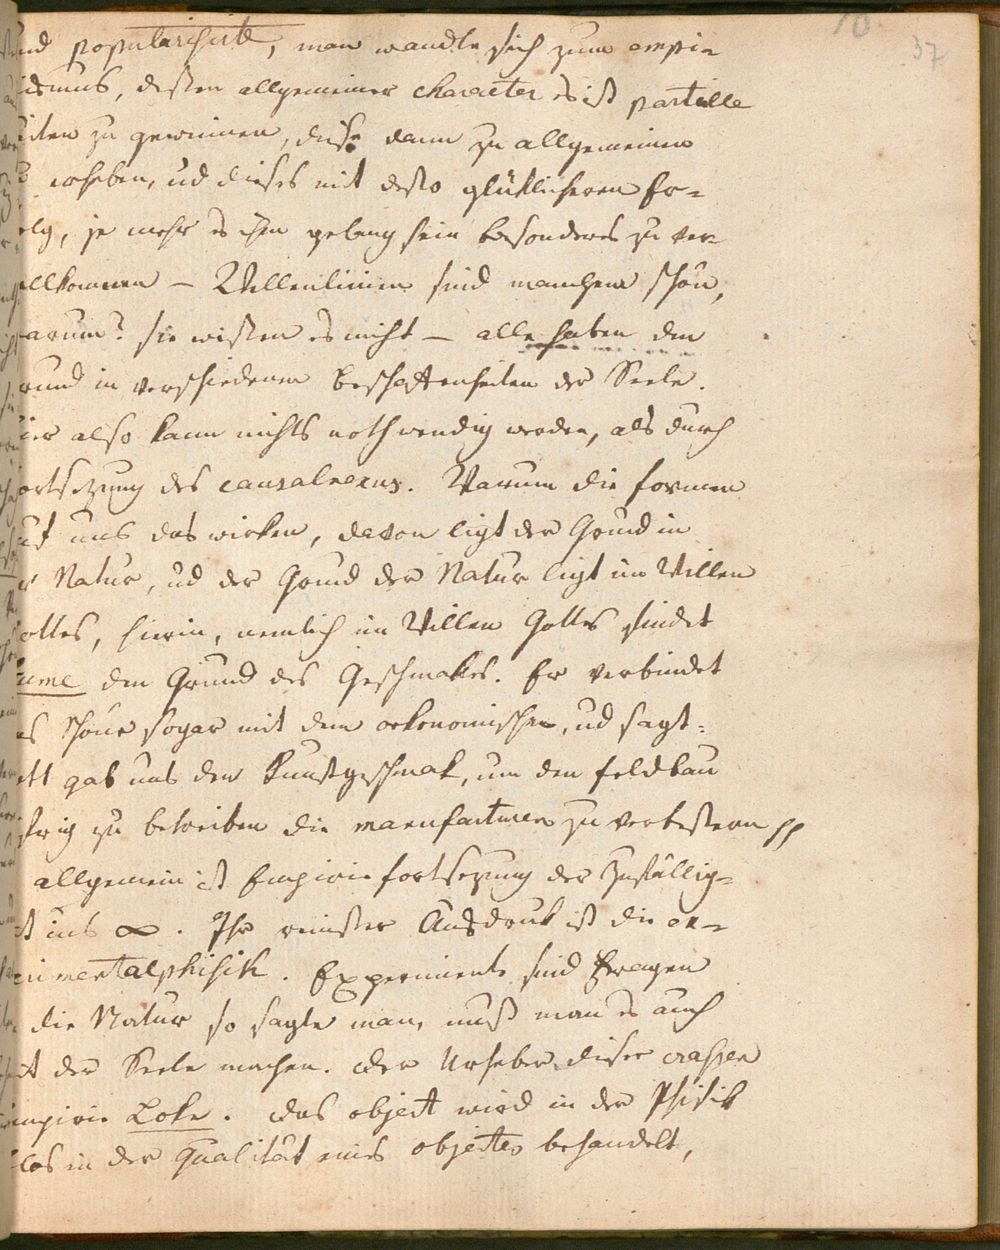 10. 37
und popularisirte, man wandte sich zum empi-
ismus, deßen allgemeiner character es ist partielle
iten zu gewinnen, diese dann zu allgemeinen
erheben, ud dieses mit desto glüklicheren Er-
olg, je mehr es ihm gelang sein besonderes zu ver-
ollkomnen – Wellenlinien sind manchem schön,
arum? sie wißen es nicht – alle haben den
rund in verschiedenen Beschaffenheiten der Seele.
ier also kann nichts nothwendig werden, als durch
ortsezung des causalnexus. Warum die formen
uf uns das wirken, davon ligt der Grund in
r Natur, ud der Grund der Natur ligt im Willen
ottes, hierin, nemlich im Willen Gottes findet
ume den Grund des Geschmakes. Er verbindet
as Schöne sogar mit dem oekonomischen, ud sagt:
ott gab uns den Kunstgeschmak, um den feldbau
ßig zu betreiben die manufacturen zu verbeßern
allgemein ist Empirie fortsezung der Zufällig-
it ins ∞. Ihr reinster Ausdruk ist die ex-
erimentalphisik. Experimente sind Fragen
die Natur so sagte man, muß man es auch
it der Seele machen. Der Urheber dieser craßen
mpirie Loke. Das object wird in der Phisik
los in der Qualität eines objectes behandelt,